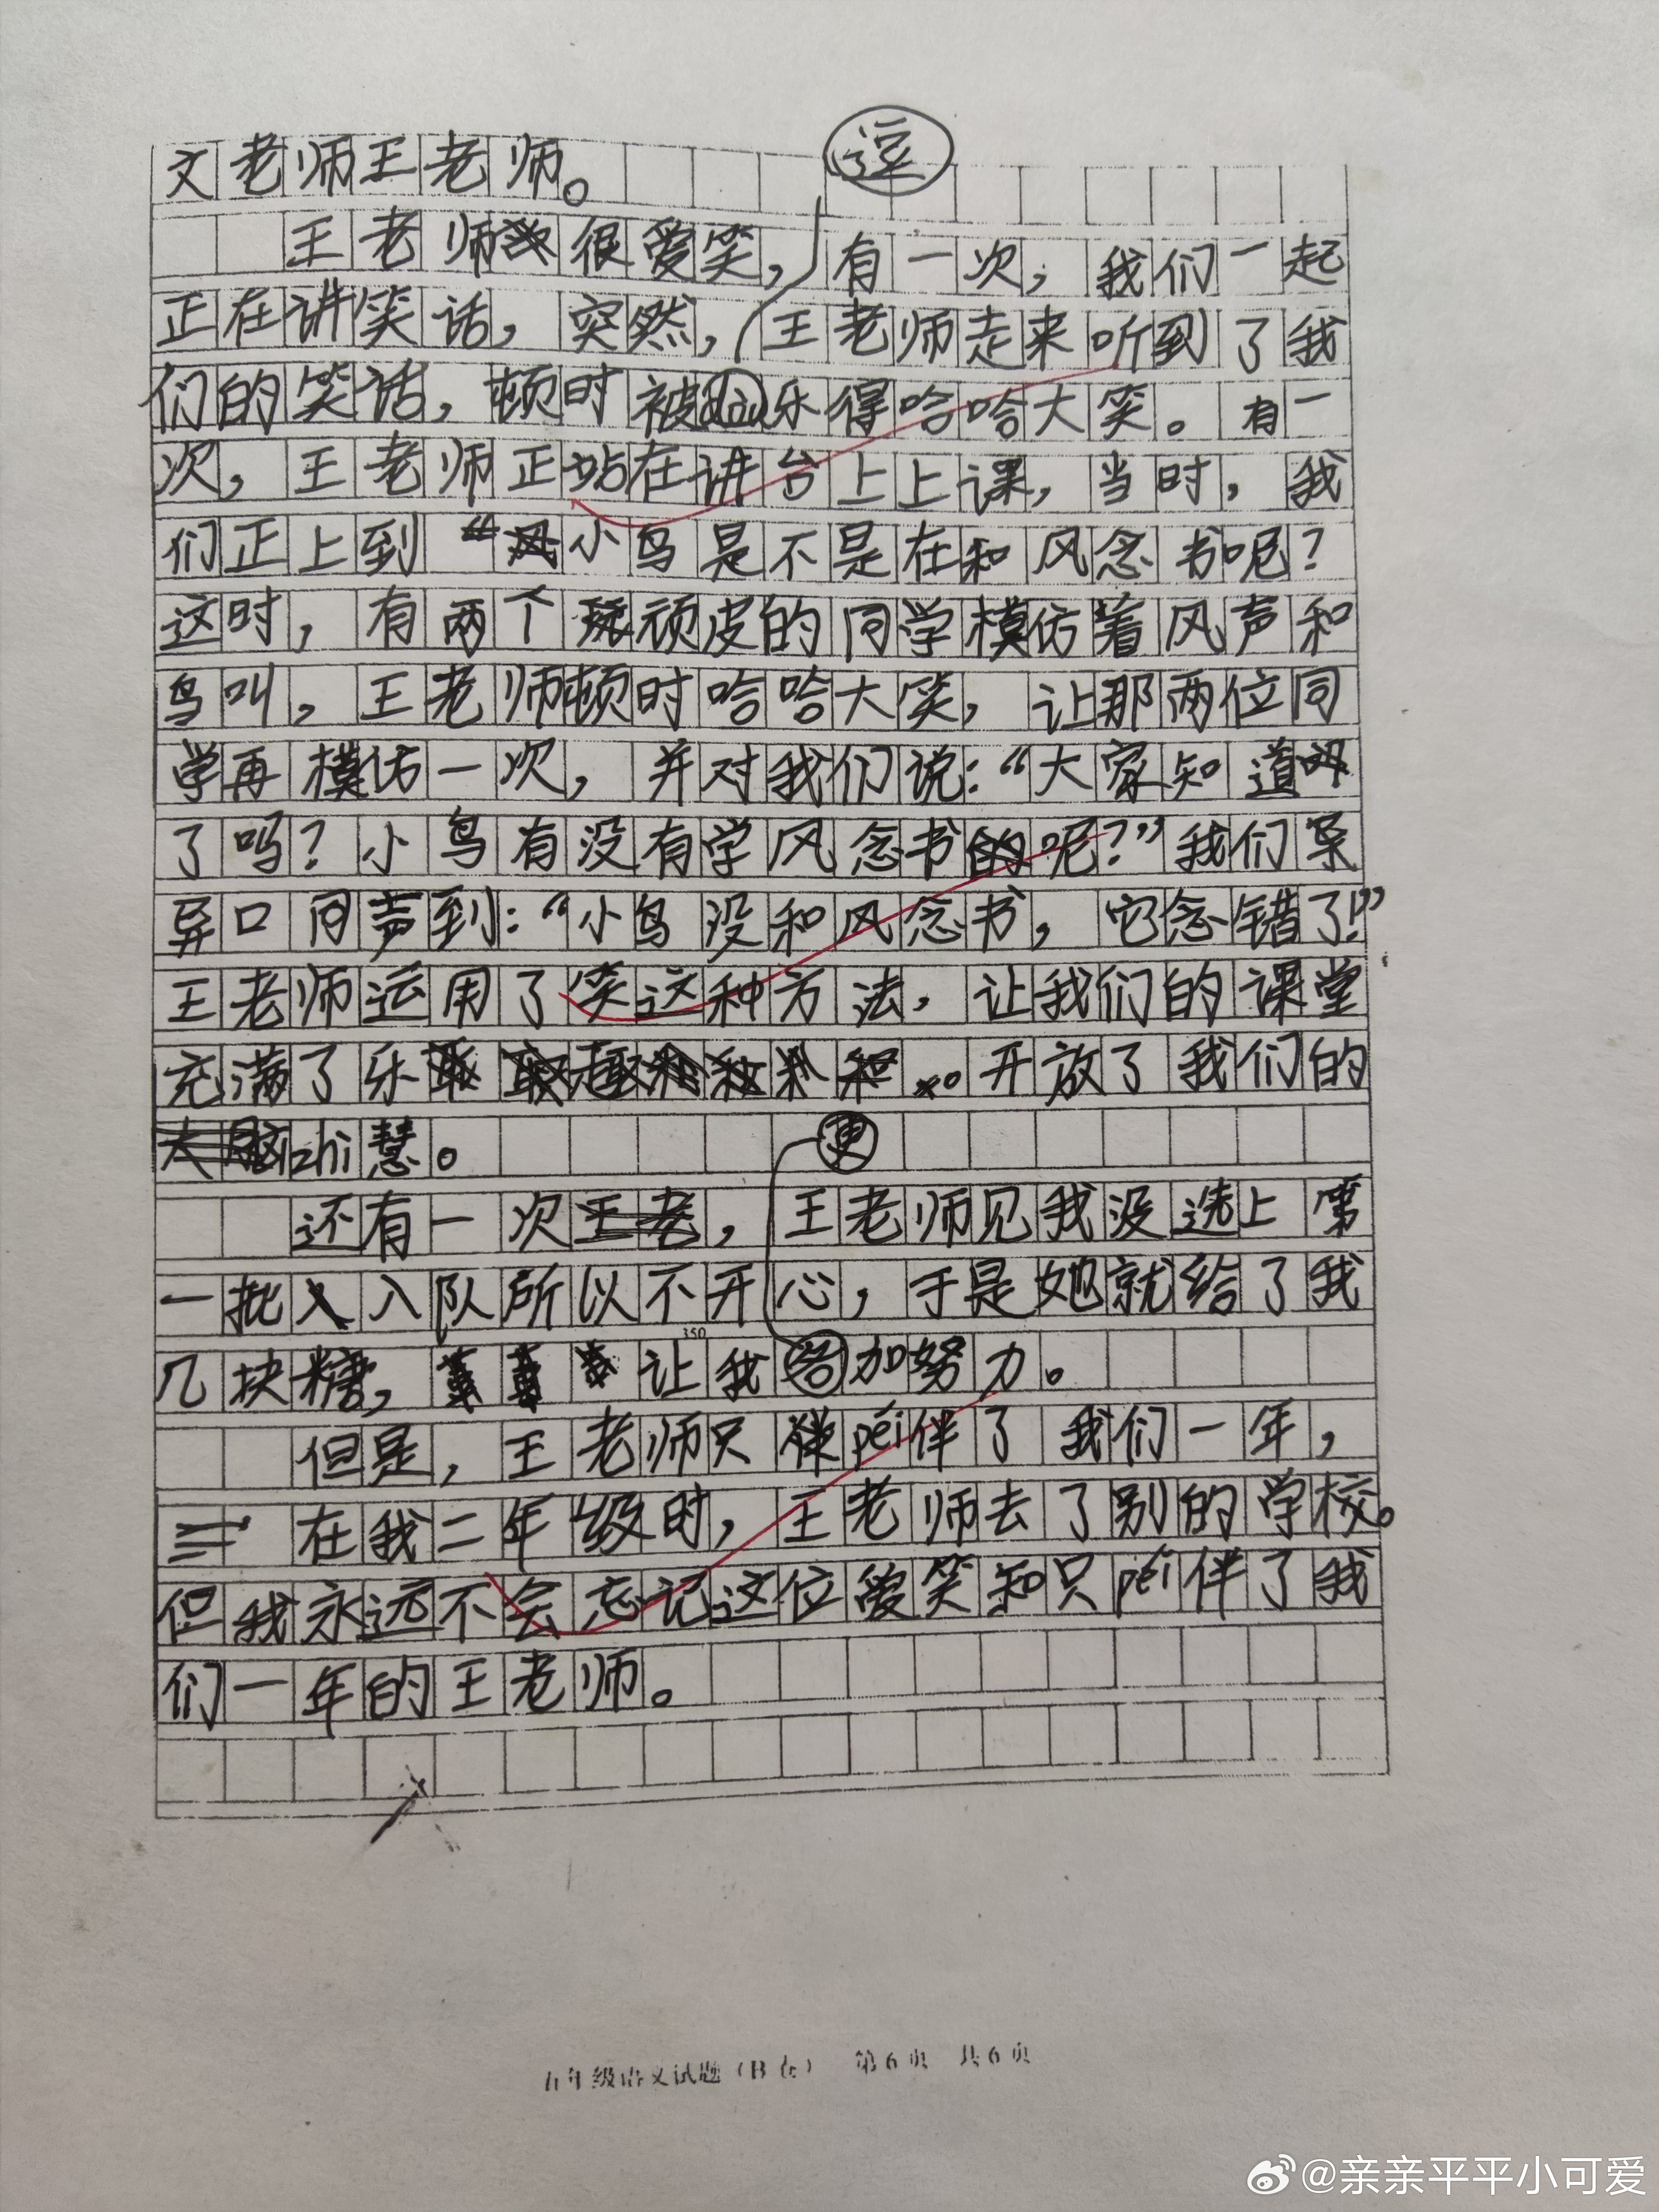 逗
文老师王老师。
王老师很爱笑，有一次，我们一起
正在讲笑话，突然，王老师走来听到了我
们的笑话，顿时被乐得哈哈大笑。有一
次，王老师正站在讲台上上课，当时，我
们正上到“小鸟是不是在和风念书呢？
这时，有两个顽皮的同学模仿着风声和
鸟叫，王老师顿时哈哈大笑，让那两位同
学再模仿一次，并对我们说：“大家知道
了吗？小鸟有没有学风念书的呢？”我们
异口同声到：“小鸟没和风念书，它念错了！”
王老师运用了笑这种方法，让我们的课堂
充满了乐开放了我们的
zhi慧。
更
还有一次，王老师见我没选上第
一批入队所以不开心，于是她就给了我
几块糖，让我加努力。
但是，王老师只péi伴了我们一年，
在我二年级时，王老师去了别的学校。
但我永远不会忘记这位爱笑和只péi伴了我
们一年的王老师。
350
五年级语文试题（B卷） 第6页 共6页
@亲亲平平小可爱